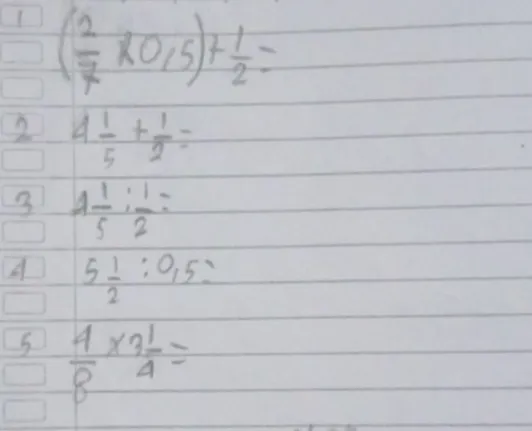 1 (2/7 × 0,5) + 1/2 =
2 4 1/5 + 1/2 =
3 4 1/5 : 1/2 =
4 5 1/2 : 0,5 =
5 4/8 × 3 1/4 =